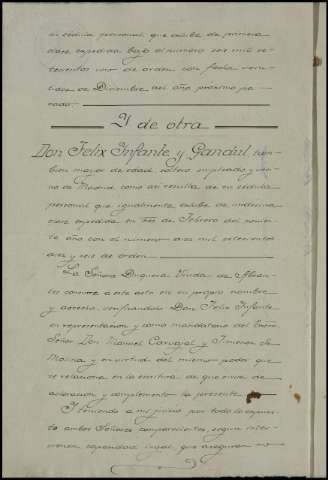 su cédula personal que exhibe de primera
clase expedida bajo el número seis mil se-
tecientos uno de orden con fecha vein-
de Diciembre del año próximo pa-
sado.
Y de otra
Don Felix Infante y Gandul, tam-
bien mayor de edad, soltero, empleado y veci-
no de Madrid como así resulta de su cédula
personal que igualmente exhibe de undécima
clase expedida en tres de Febrero del corrien-
te año con el número diez mil setecientos
diez y seis de orden.
La Señora Duquesa Viuda de Abran-
tes concurre a este acto en su propio nombre
y derecho, verificandolo Don Felix Infante
en representación y como mandatario del Excmo
Señor Don Manuel Carvajal y Jimenez de
Molina y en virtud del mismo poder que
se relaciona en la escritura de que sirve de
aclaración y complemento la presente
Y teniendo a mi juicio por todo lo expues-
to ambos Señores comparecientes segun inter-
vienen capacidad legal, que aseguran no